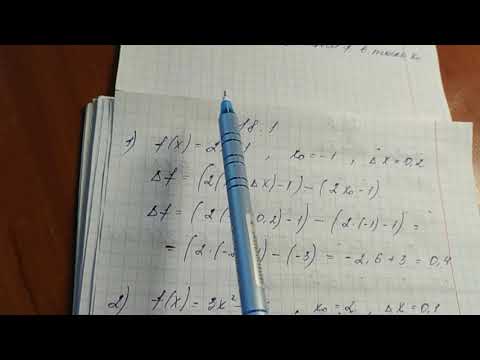 в точке x₀
18.1
1) f(x) = 2 1 , x₀ = -1 , Δx = 0,2
Δf = (2( Δx) - 1) - (2x₀ - 1)
Δf = (2( 0,2) - 1) - (2·(-1) - 1) =
= (2·(- 1) - (-3) = -2,6 + 3 = 0,4
2) f(x) = 3x² x₀ = 2 , Δx = 0,1